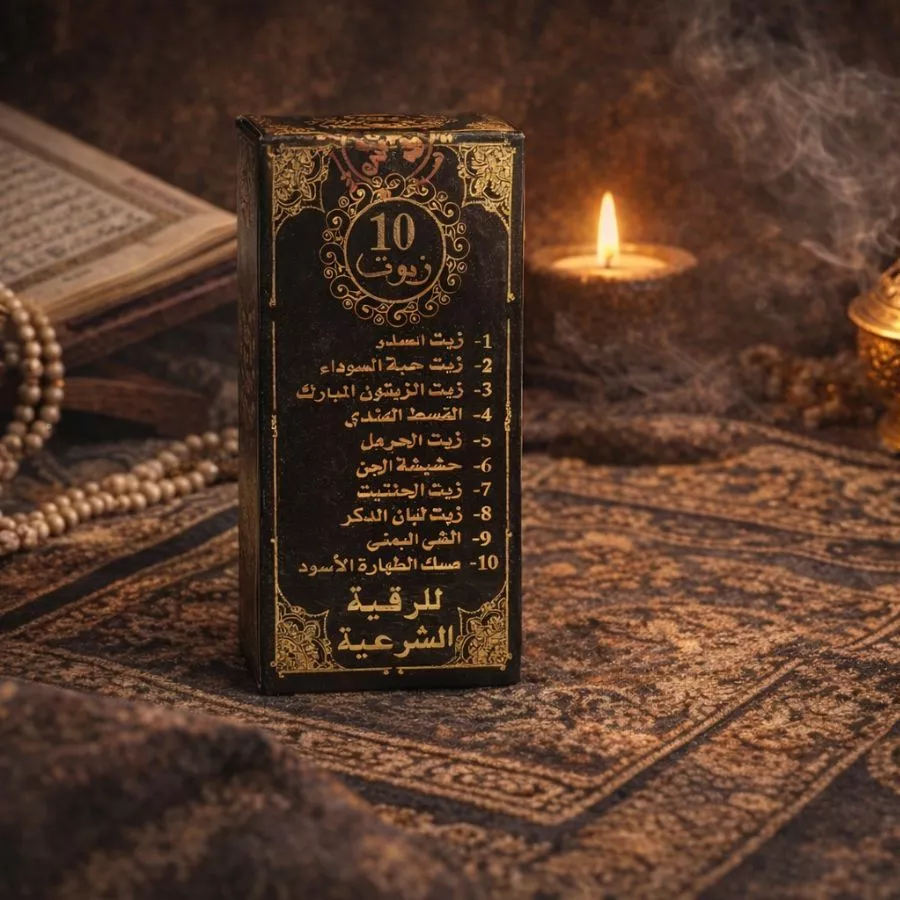 10
زيوت
1- زيت السدر
2- زيت حبة السوداء
3- زيت الزيتون المبارك
4- القسط الهندي
5- زيت الحرمل
6- حشيشة الجن
7- زيت الحنتيت
8- زيت لبان الدكر
9- الشي اليمني
10- مسك الطهارة الأسود
للرقية
الشرعية